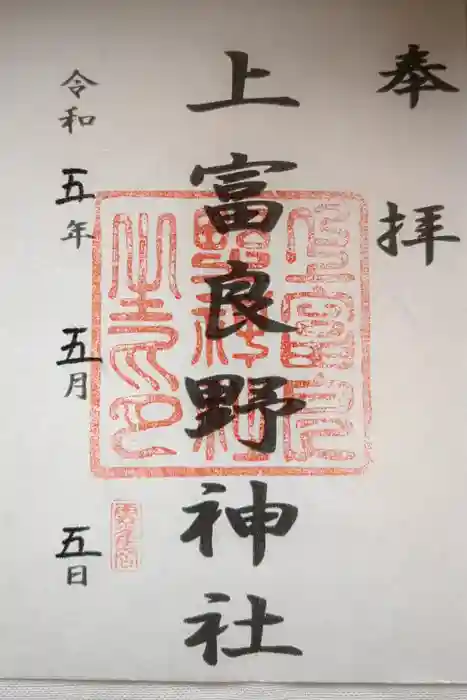 奉拝
上富良野神社
令和五年五月五日